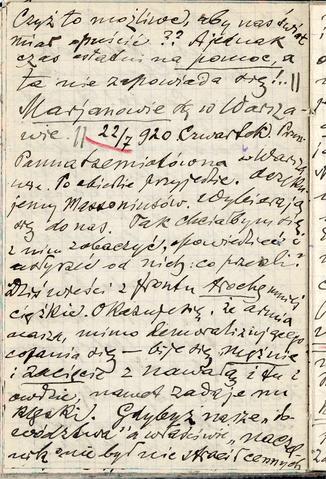 Czyż to możliwe, aby nas świat
miał opuścić?? A jednak
czas ostatni na pomoc, a
ta nie zapowiada się!.. ||
Marjanowie są w Warsza-
wie. || 22/7 920 Czwartek)
Panna Ziemiatówna w Warsza-
wie. Po obiedzie przyjedzie.
jemy Wybierają
się do nas. Tak chciałbym się
z nim zobaczyć, opowiedzieć i
usłyszeć od nich: co przeszli?
Dziś wieści z frontu trochę mniej
ciężkie. Okazuje się, że armia
nasza, mimo demoralizującego
cofania się — bije się mężnie
i zacięcie z nawałą i tu i
owdzie, nawet zadaje mu
klęski. Gdybyż nasze „do-
wództwo", a właściwie „naczel-
nik" nie był nie stracił cennych